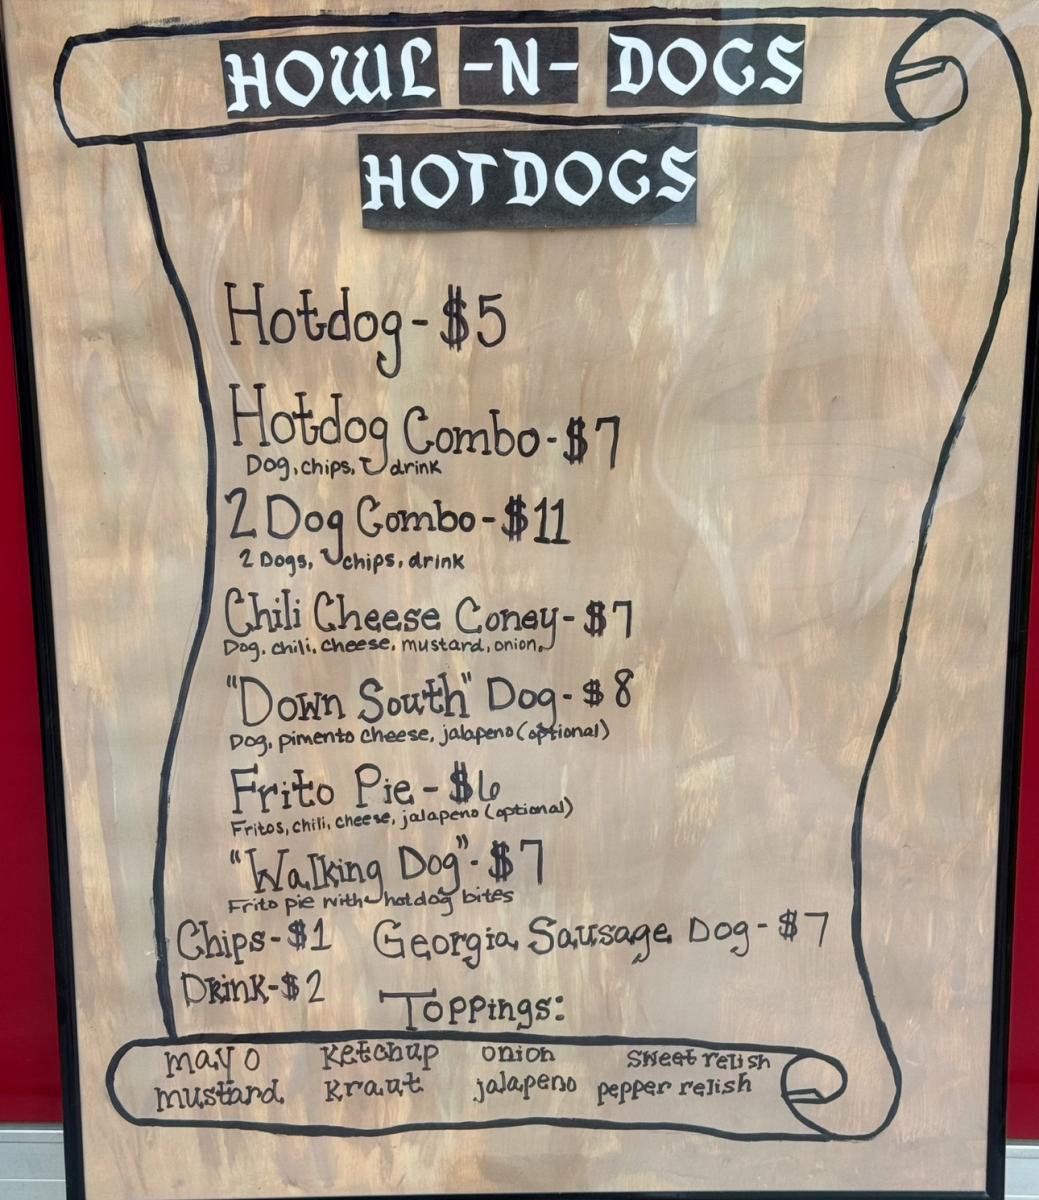 HOWL -N- DOGS
HOTDOGS
Hotdog - $5
Hotdog Combo - $7
Dog, chips, drink
2 Dog Combo - $11
2 Dogs, chips, drink
Chili Cheese Coney - $7
Dog, chili, cheese, mustard, onion
"Down South" Dog - $8
Dog, pimento cheese, jalapeno (optional)
Frito Pie - $6
Fritos, chili, cheese, jalapeno (optional)
"Walking Dog" - $7
Frito pie with hotdog bites
Chips - $1 Georgia Sausage Dog - $7
Drink - $2
Toppings:
mayo ketchup onion sweet relish
mustard kraut jalapeno pepper relish